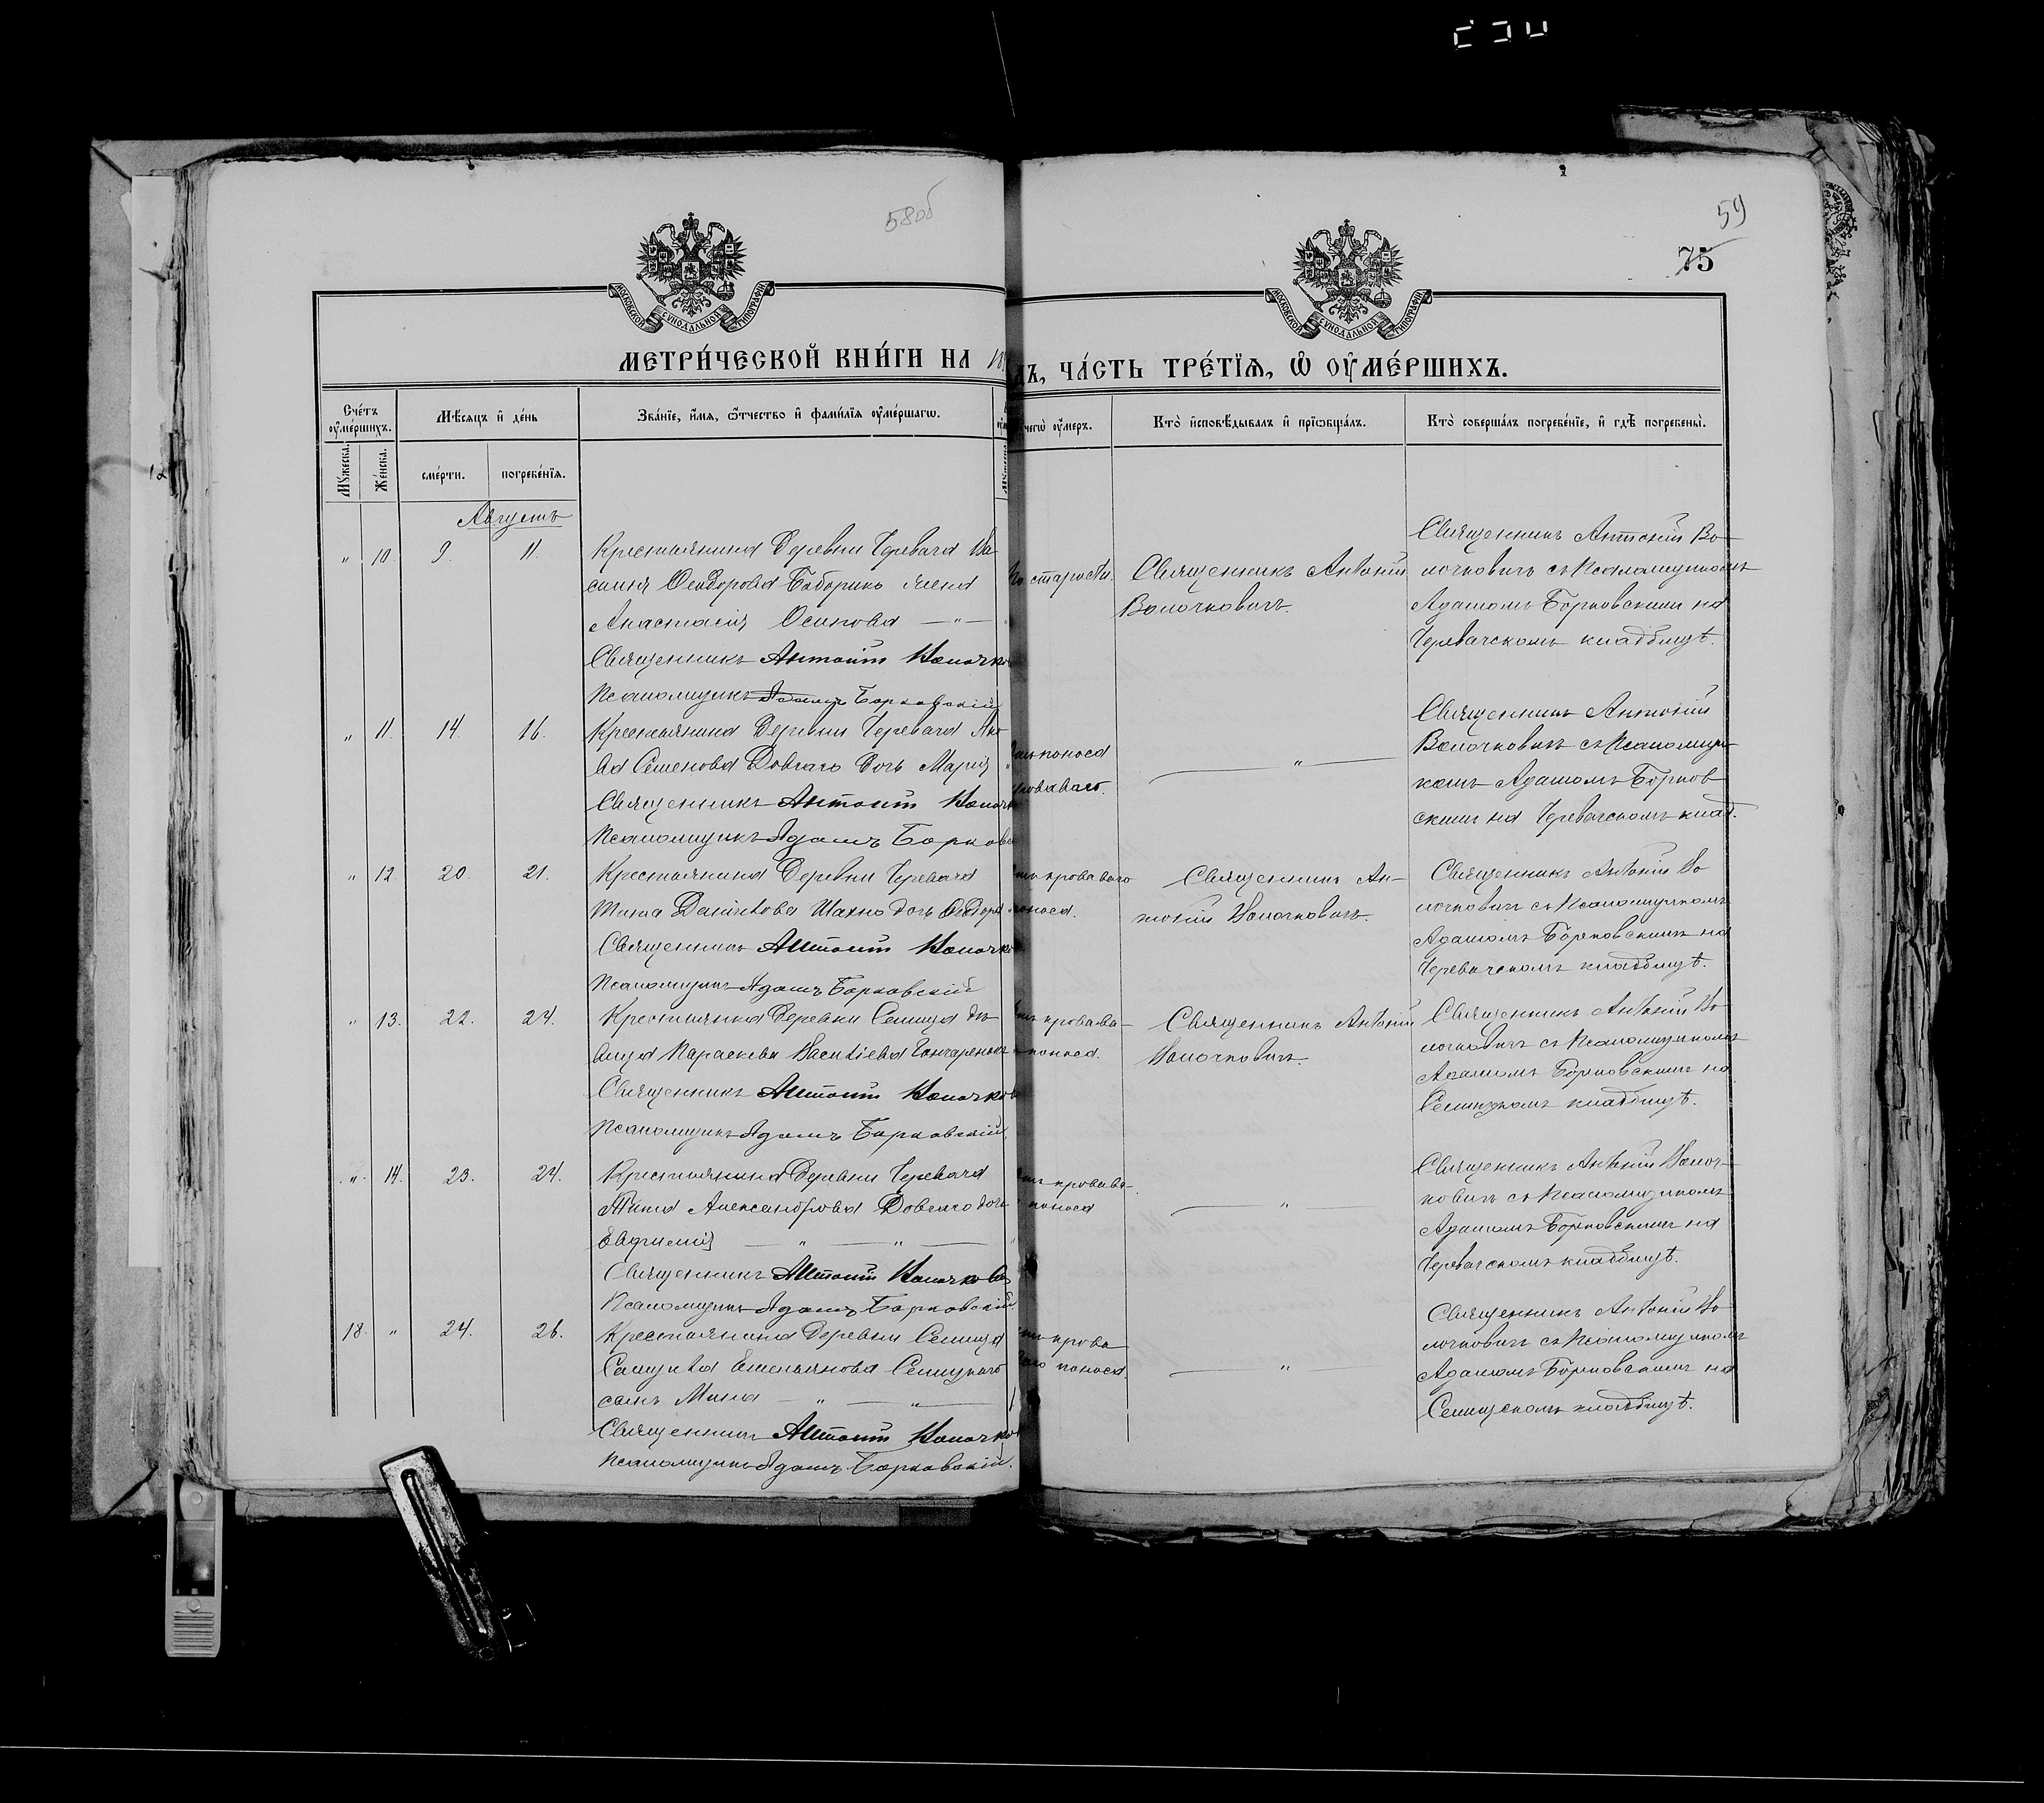 58об
59
75
МОСКОВСКОЙ СѴНОДАЛЬНОЙ ТИПОГРАФІИ
МОСКОВСКОЙ СѴНОДАЛЬНОЙ ТИПОГРАФІИ
МЕТРИ́ЧЕСКОЙ КНИ́ГИ НА 18
ДЪ, ЧА́СТЬ ТРЕ́ТЇѦ, Ѡ҆ ОУ҆МЕ́РШИХЪ.
Сче́тъ оу҆ме́ршихъ.
Мꙋ́жеска.
Же́нска.
Мѣ́сѧцъ и҆ де́нь
сме́рти.
погребе́нїѧ.
Зва́нїе, и҆́мѧ, ѻ҆́тчество и҆ фами́лїѧ оу҆ме́ршагѡ.
чегѡ̀ оу҆́меръ.
Кто̀ и҆сповѣ́дывалъ и҆ прїѡбща́лъ.
Кто̀ соверша́лъ погребе́нїе, и҆ гдѣ̀ погребены̀.
Августъ
" 10 9. 11.
Крестьянина Деревни Черевача Ва
силия Феодорова Бобрико жена
Анастасія Осипова — " —
Священникъ Антоній Волочко
Псаломщикъ Адамъ Борковскій
старости.
Священникъ Антоній
Волочковичъ.
Священникъ Антоній Во-
лочковичъ съ Псаломщикомъ
Адамомъ Борковскимъ на
Черевачскомъ кладбищѣ.
" 11. 14. 16.
Крестьянина Деревни Черевача Яко
ва Семенова Довгаго дочь Марія
Священникъ Антоній Волоч
Псаломщикъ Адамъ Борков
поноса
кроваваго.
"
Священникъ Антоній
Волочковичъ съ Псаломщи-
комъ Адамомъ Борков
скимъ на Черевачскомъ клад.
" 12 20. 21.
Крестьянина Деревни Черевача
Данилова Шахно дочь Феодора
Священникъ Антоній Волочко
Псаломщикъ Адамъ Борковскій
кроваваго
поноса.
Священникъ Ан-
тоній Волочковичъ.
Священникъ Антоній Во
лочковичъ съ Псаломщикомъ
Адамомъ Борковскимъ на
Черевачскомъ кладбищѣ.
" 13. 22. 24.
Крестьянка Деревни Семица дѣ
вица Параскева Васильева Гончаренокъ
Священникъ Антоній Волочков
Псаломщикъ Адамъ Борковскій
кровава-
поноса.
Священникъ Антоній
Волочковичъ
Священникъ Антоній Во-
лочковичъ съ Псаломщикомъ
Адамомъ Борковскимъ на
Семицкомъ кладбищѣ.
" 14. 23. 24.
Крестьянина Деревни Черевача
Александрова Довгаго дочь
Евфимія — " — " —
Священникъ Антоній Волочков
Псаломщикъ Адамъ Борковскій
кровава-
поноса
"
Священникъ Антоній Волоч-
ковичъ съ Псаломщикомъ
Адамомъ Борковскимъ на
Черевачскомъ кладбищѣ.
18. " 24. 26.
Крестьянина Деревни Семица
Самуила Емельянова Семицкаго
сынъ Мина — " — " —
Священникъ Антоній Волочко
Псаломщикъ Адамъ Борковскій.
крова
поноса.
"
Священникъ Антоній Во
лочковичъ съ Псаломщикомъ
Адамомъ Борковскимъ на
Семицкомъ кладбищѣ.